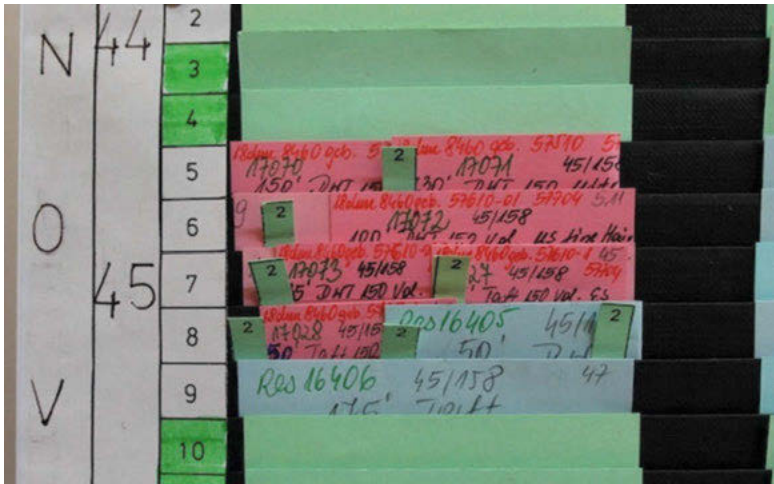 N O V
44
45
2
3
4
5
6
7
8
9
10
18 8460 geb. 57510
2
17070
17071 45/158
150' DHT 150
130' DHT 150
9
8460 geb. 57610-01 57704 5.11
2
17072 45/158
100 DHT 150 Vol.
8460 geb. 57610
2
17073 45/158
5' DHT 150 Vol.
8460 geb. 57610-1 45
2
27 45/158 57704
Taft 150 Vol. Gs
8460 geb.
2
17028 45/15
50' Taft 150
2
Res 16405 45/1
2
50'
Res 16406 45/158 47
175' Taft